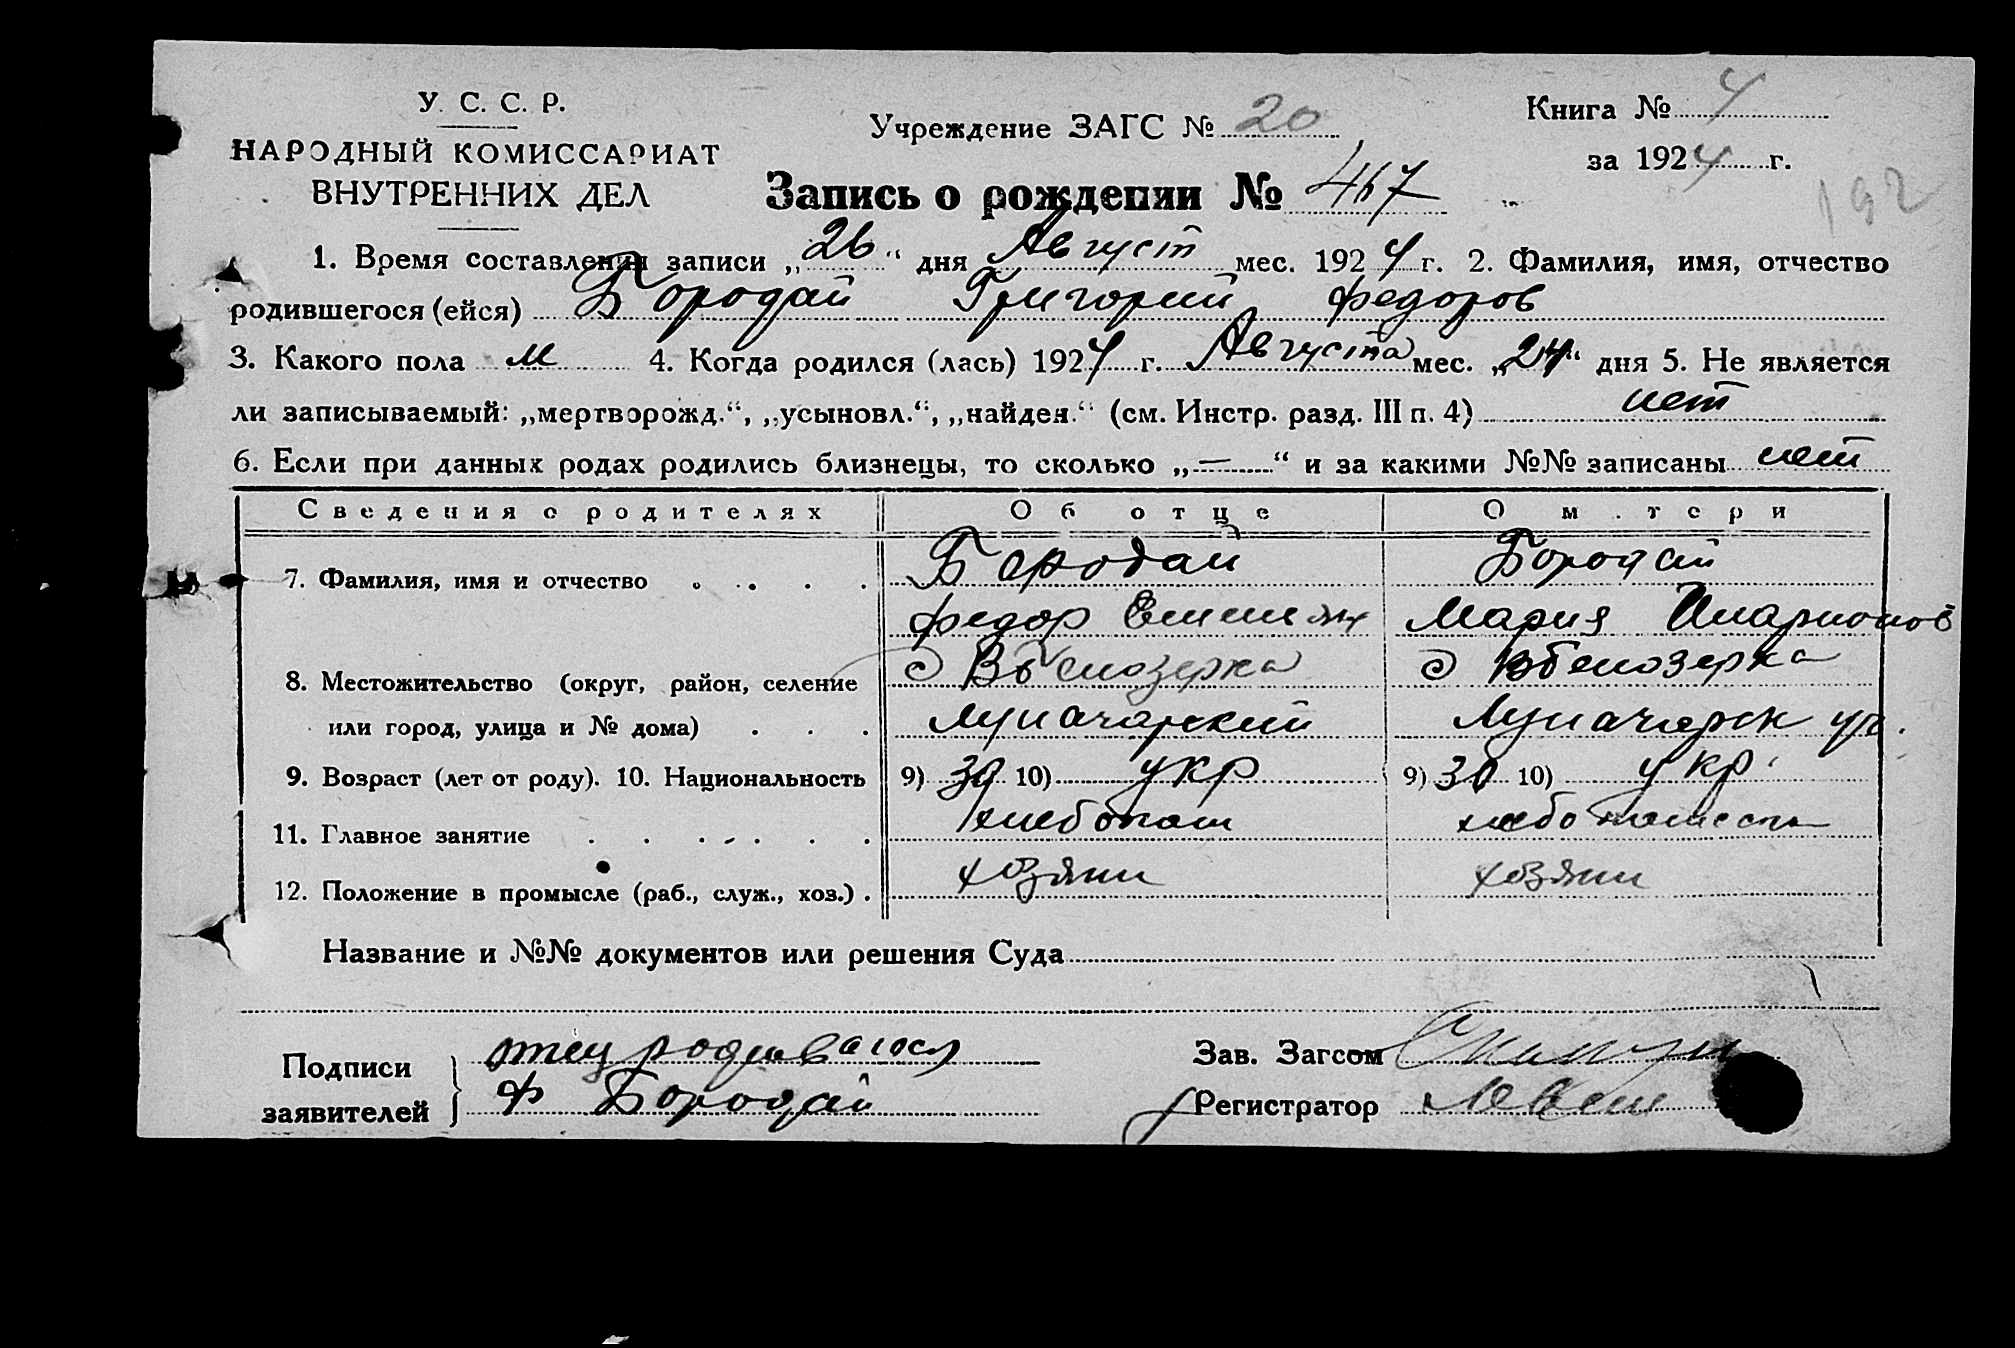 У. С. С. Р.
НАРОДНЫЙ КОМИССАРИАТ
ВНУТРЕННИХ ДЕЛ
Учреждение ЗАГС № 20
Книга № 4
за 1924 г.
192
Запись о рождении № 467
1. Время составления записи „26“ дня Август мес. 1924 г. 2. Фамилия, имя, отчество
родившегося (ейся) Бородай Григорий Федоров
3. Какого пола м 4. Когда родился (лась) 1924 г. Августа мес. „24“ дня 5. Не является
ли записываемый: „мертворожд.“, „усыновл.“, „найден.“ (см. Инстр. разд. III п. 4) нет
6. Если при данных родах родились близнецы, то сколько „—“ и за какими №№ записаны нет
Сведения о родителях Об отце О м.тери
7. Фамилия, имя и отчество Бородай Бородай
Федор Мария Иларионов
8. Местожительство (округ, район, селение с Вбелозерка с Вбелозерка
или город, улица и № дома) Луначарский Луначарск ул.
9. Возраст (лет от роду). 10. Национальность 9) 30 10) укр 9) 30 10) укр.
11. Главное занятие хлебопаш
12. Положение в промысле (раб., служ., хоз.) хозяин хозяин
Название и №№ документов или решения Суда
Подписи заявителей } отец родивагося
Ф Бородай
Зав. Загсом
Регистратор